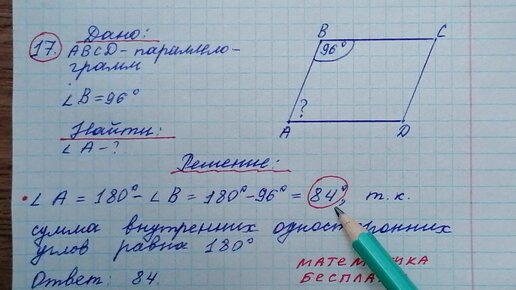 17.
Дано:
ABCD - параллело-
грамм
∠B = 96°
Найти:
∠A - ?
B
C
96°
?
A
D
Решение:
∠A = 180° - ∠B = 180° - 96° = 84°, т.к.
сумма внутренних одност ронних
углов равна 180°
Ответ: 84.
МАТЕМАТИКА
БЕСПЛА